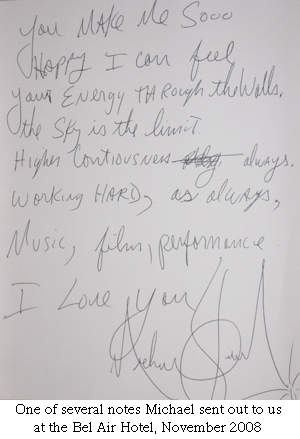 You Make Me Sooo
Happy I can feel
your Energy Through the Walls.
the Sky is the limit
Higher Contiousness always.
working HARD, as always,
Music, film, performance
I Love You
One of several notes Michael sent out to us
at the Bel Air Hotel, November 2008